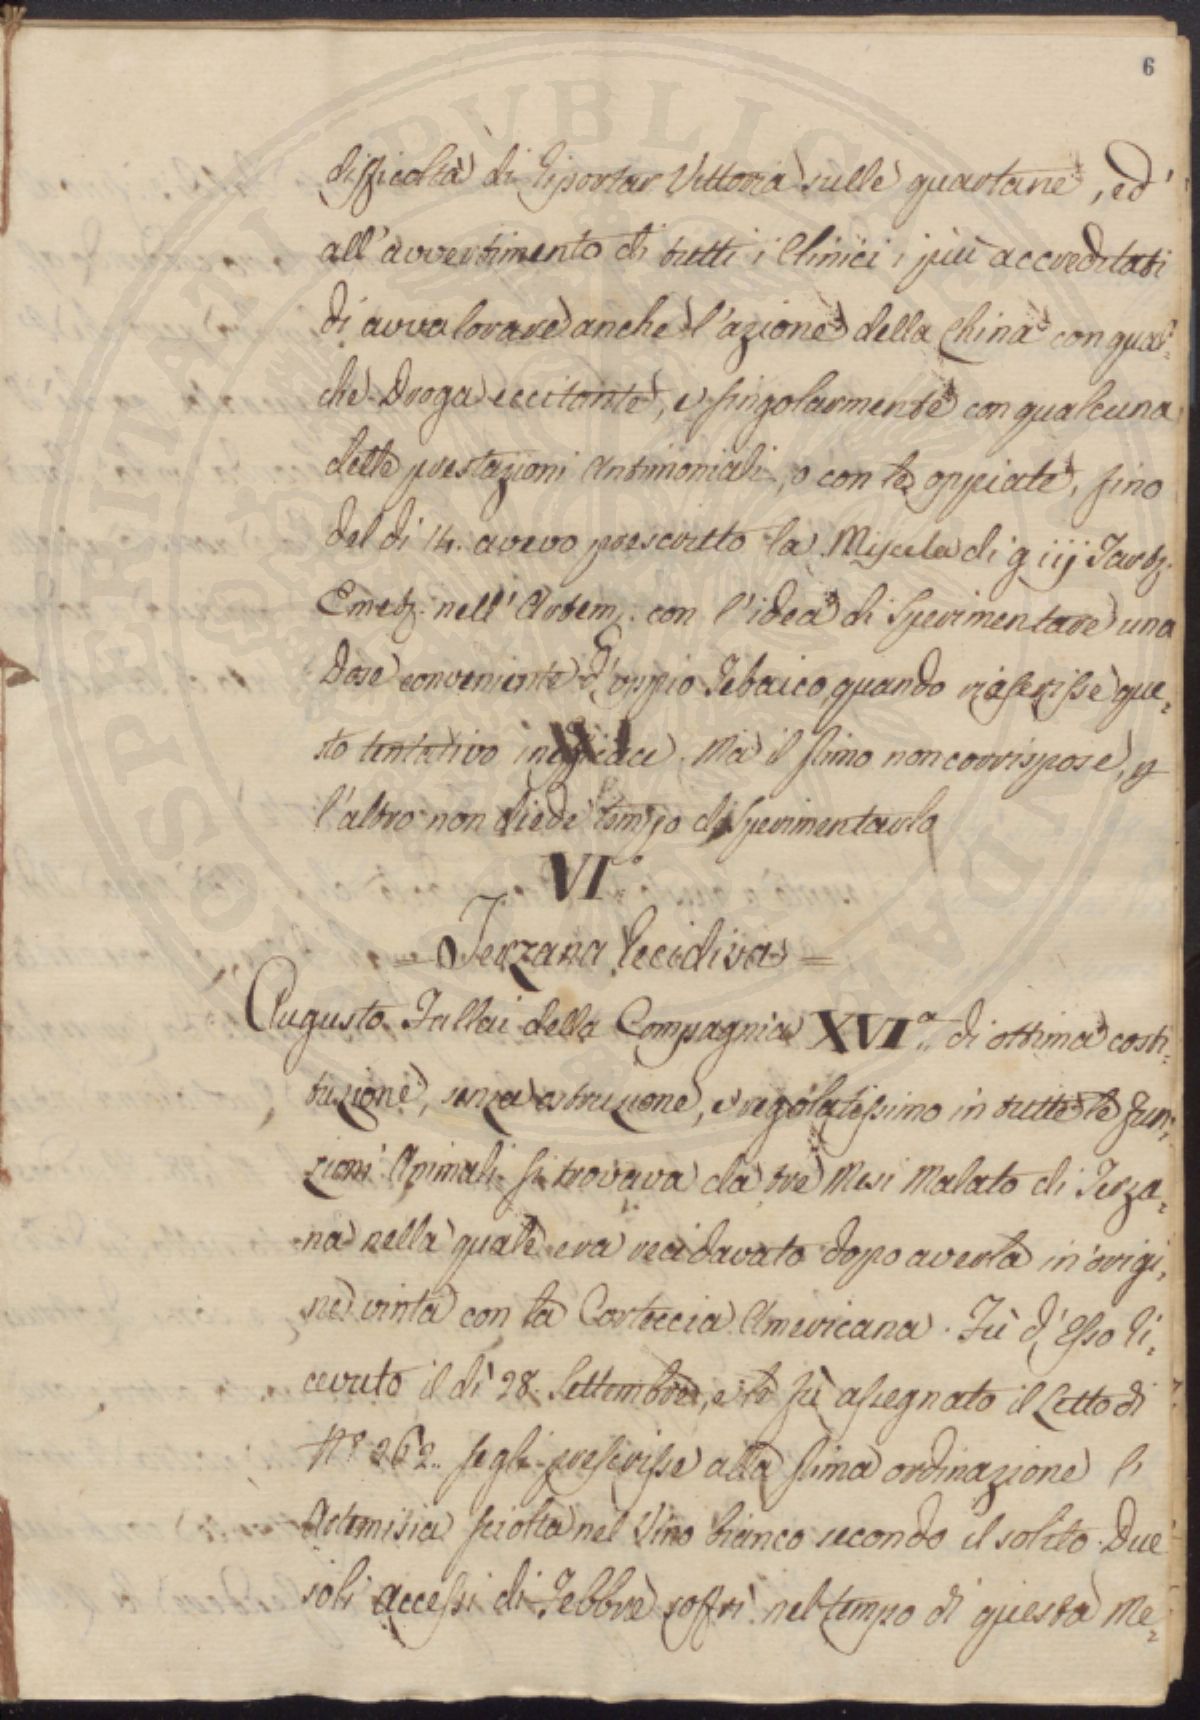 6
difficoltà di Riportar Vittoria sulle quartane, ed
all'avvertimento di tutti i Clinici i più accreditati
di avvalorare anche l'azione della China con qual=
che Droga eccitante, e singolarmente con qualcuna
delle prestazioni Antimoniali, o con le oppiate, fino
del dì 14. avevo prescritto la Miscela di g iij Tartz.
Emetz. nell'Artem. con l'idea di Sperimentare una
Dose conveniente d'oppio Tebaico, quando riescisse que=
sto tentativo inefficace. Ma il primo non corrispose, e
l'altro non diede tempo di Sperimentarlo
VI.°
= Terzana Recidiva =
Augusto Fallai della Compagnia XVI.a di ottima costi=
tuzione, senza ostruzione, e regolatissimo in tutte le Fun=
zioni Animali si trovava da tre Mesi Malato di Terza=
na nella quale era recidavato dopo averla in origi=
ne vinta con la Corteccia Americana. Fù d'Esso Ri=
cevuto il dì 28. Settembre, e le fù assegnato il Letto di
N.° 262. Se gli prescrisse alla prima ordinazione l'
Artemisia sciolta nel Vino bianco secondo il solito. Due
soli accessi di Febbre soffrì nel tempo di questa Me=